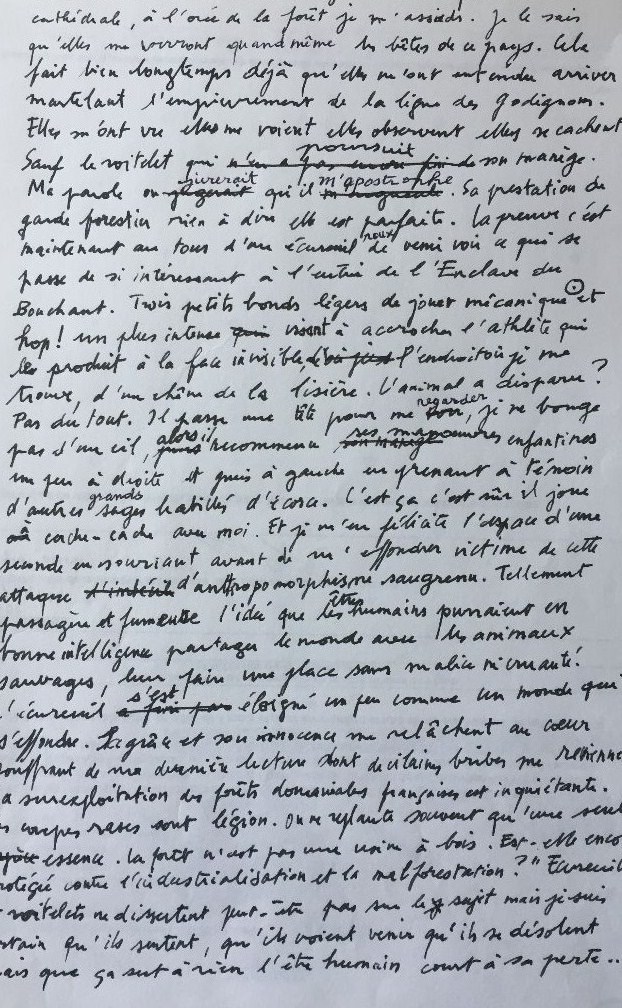 cathédrale, à l'orée de la forêt je m'assieds. Je le sais
qu'elles me verront quand même les bêtes de ce pays. Cela
fait bien longtemps déjà qu'elles m'ont entendu arriver
martelant l'empierrement de la ligne des Godignons.
Elles m'ont vu elles me voient elles observent elles se cachent
poursuit
Sauf le roitelet qui n'en a pas encore fini de son manège.
jurerait m'apostrophe
Ma parole on qu'il . Sa prestation de
garde forestier rien à dire elle est parfaite. La preuve c'est
roux
maintenant au tour d'un écureuil de venir voir ce qui se
passe de si intéressant à l'entrée de l'Enclave du
Bouchant. Trois petits bonds légers de jouet mécanique et
hop! un plus intense qui visant à accrocher l'athlète qui
se produit à la face invisible, l'endroit où je me
trouve, d'un chêne de la lisière. L'animal a disparu?
regarder
Pas du tout. Il passe une tête pour me voir, je ne bouge
alors il
pas d'un cil, puis recommence ses manoeuvres enfantines
un peu à droite et puis à gauche en prenant à témoin
grands
d'autres sages habillés d'écorce. C'est ça c'est sûr il joue
à cache-cache avec moi. Et je m'en félicite l'espace d'une
seconde en souriant avant de m'effondrer victime de cette
attaque d'anthropomorphisme saugrenu. Tellement
êtres
passagère et fumeuse l'idée que les humains pourraient en
bonne intelligence partager le monde avec les animaux
sauvages, leur faire une place sans malice ni cruauté.
s'est
L'écureuil a fini par éloigné un peu comme un monde qui
s'effondre. Sa grâce et son innocence me relâchent au cœur
souffrant de ma dernière lecture dont certaines bribes me revienne
a surexploitation des forêts domaniales françaises est inquiétante.
s coupes rases sont légion. On ne replante souvent qu'une seul
essence. La forêt n'est pas une usine à bois. Est-elle enco
rotégée contre l'industrialisation et la malforestation?" Ecureuil
roitelets ne dissertent peut-être pas sur le sujet mais je suis
rtain qu'ils sentent, qu'ils voient venir qu'ils se désolent
ais que ça sert à rien l'être humain court à sa perte...